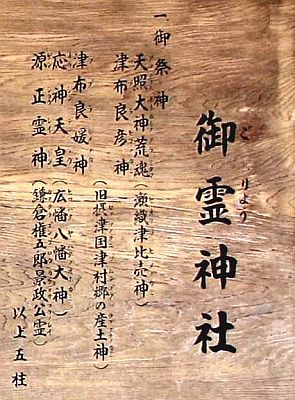 御霊神社
ごりょう
一、御祭神
天照大神荒魂(瀬織津比売神)
津布良彦神
(旧摂津国津村郷の産土神)
津布良媛神
応神天皇(広幡八幡大神)
源正霊神(鎌倉権五郎景政公霊)
以上五柱